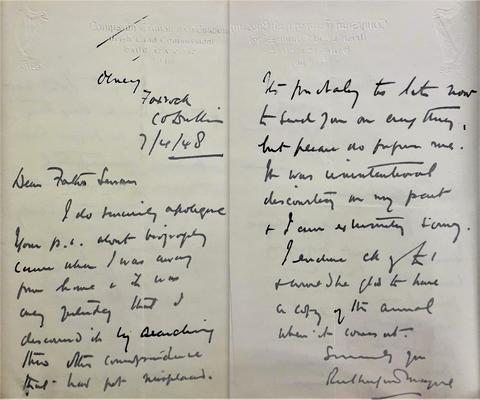 Foxrock
Co Dublin
7/4/48
Dear Father Senan
I do sincerely apologise
Your p.c. about biography
came when I was away
from home & it was
only yesterday that I
discovered it by searching
thro other correspondence
that had got misplaced.
It's probably too late now
to send you on anything,
but please do forgive me.
It was unintentional
discourtesy on my part
& I am extremely sorry.
I enclose ch for £1
& would be glad to have
a copy of the annual
when it comes out.
Sincerely yrs
Rutherford Mayne